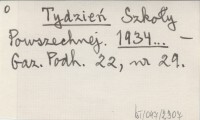 Tydzień Szkoły
Powszechnej. 1934... –
Gaz. Podh. 22, nr 29.